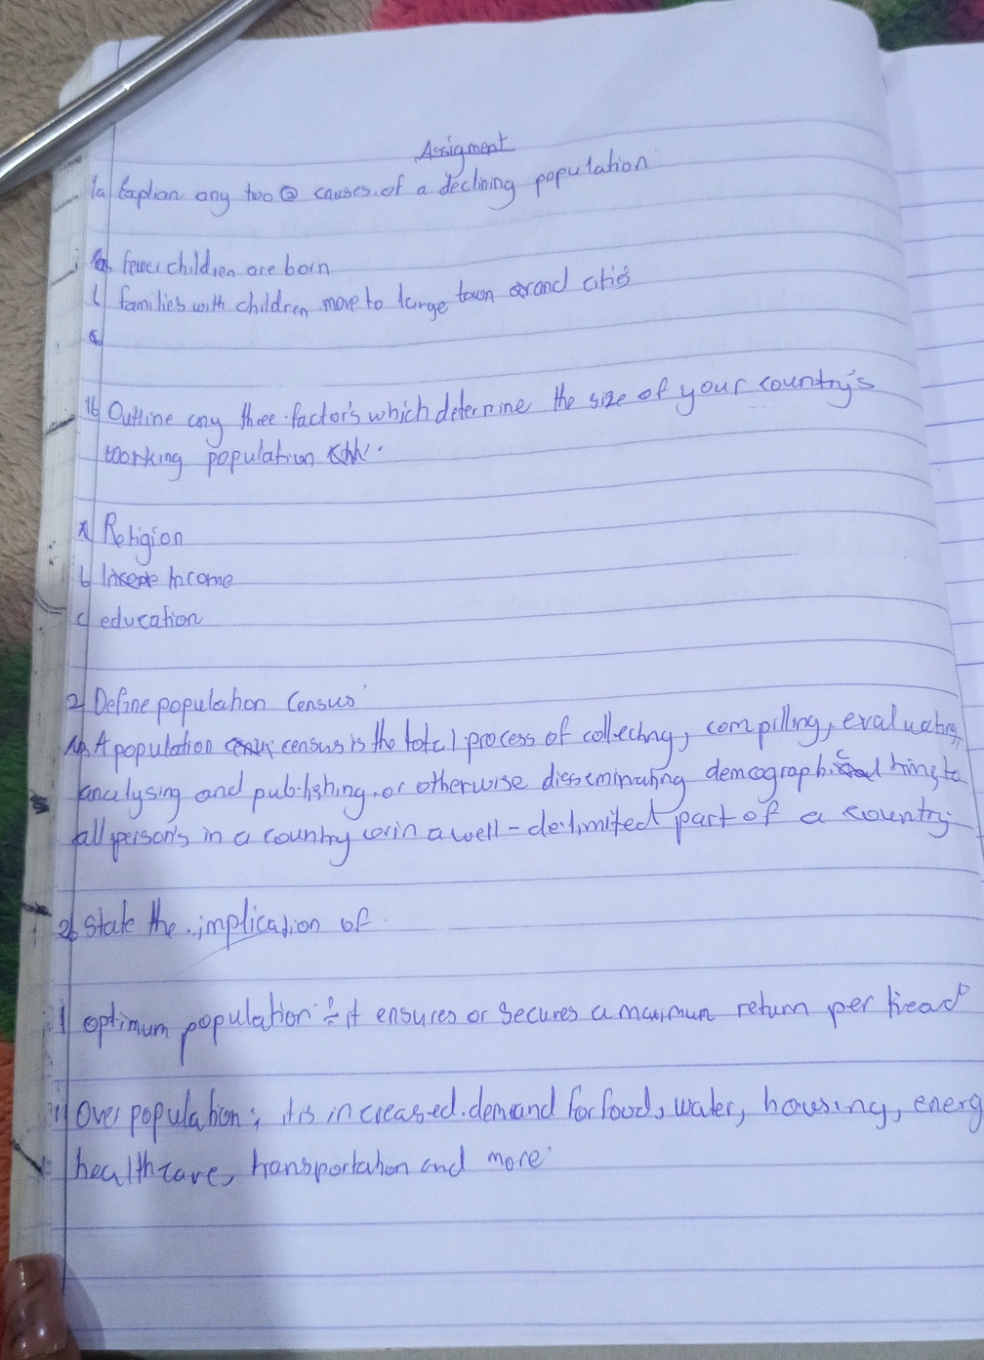 Assigment
1a Explian any two causes of a declining population
a fewer children are born
b families with children move to large town and cities
c
1b Outline any three factor's which determine the size of your country's
working population
a Religion
b Income
c education
2 Define population Census
A population census is the total process of collecting, compilling, evaluating,
analysing and publishing, or otherwise disseminating demographic
all person's in a country or in a well-delimited part of a country
2b State the implication of
i optimum population :- it ensures or secures a maximum return per head
ii Over population; it is increased demand for food, water, housing, energ
healthcare, transportation and more